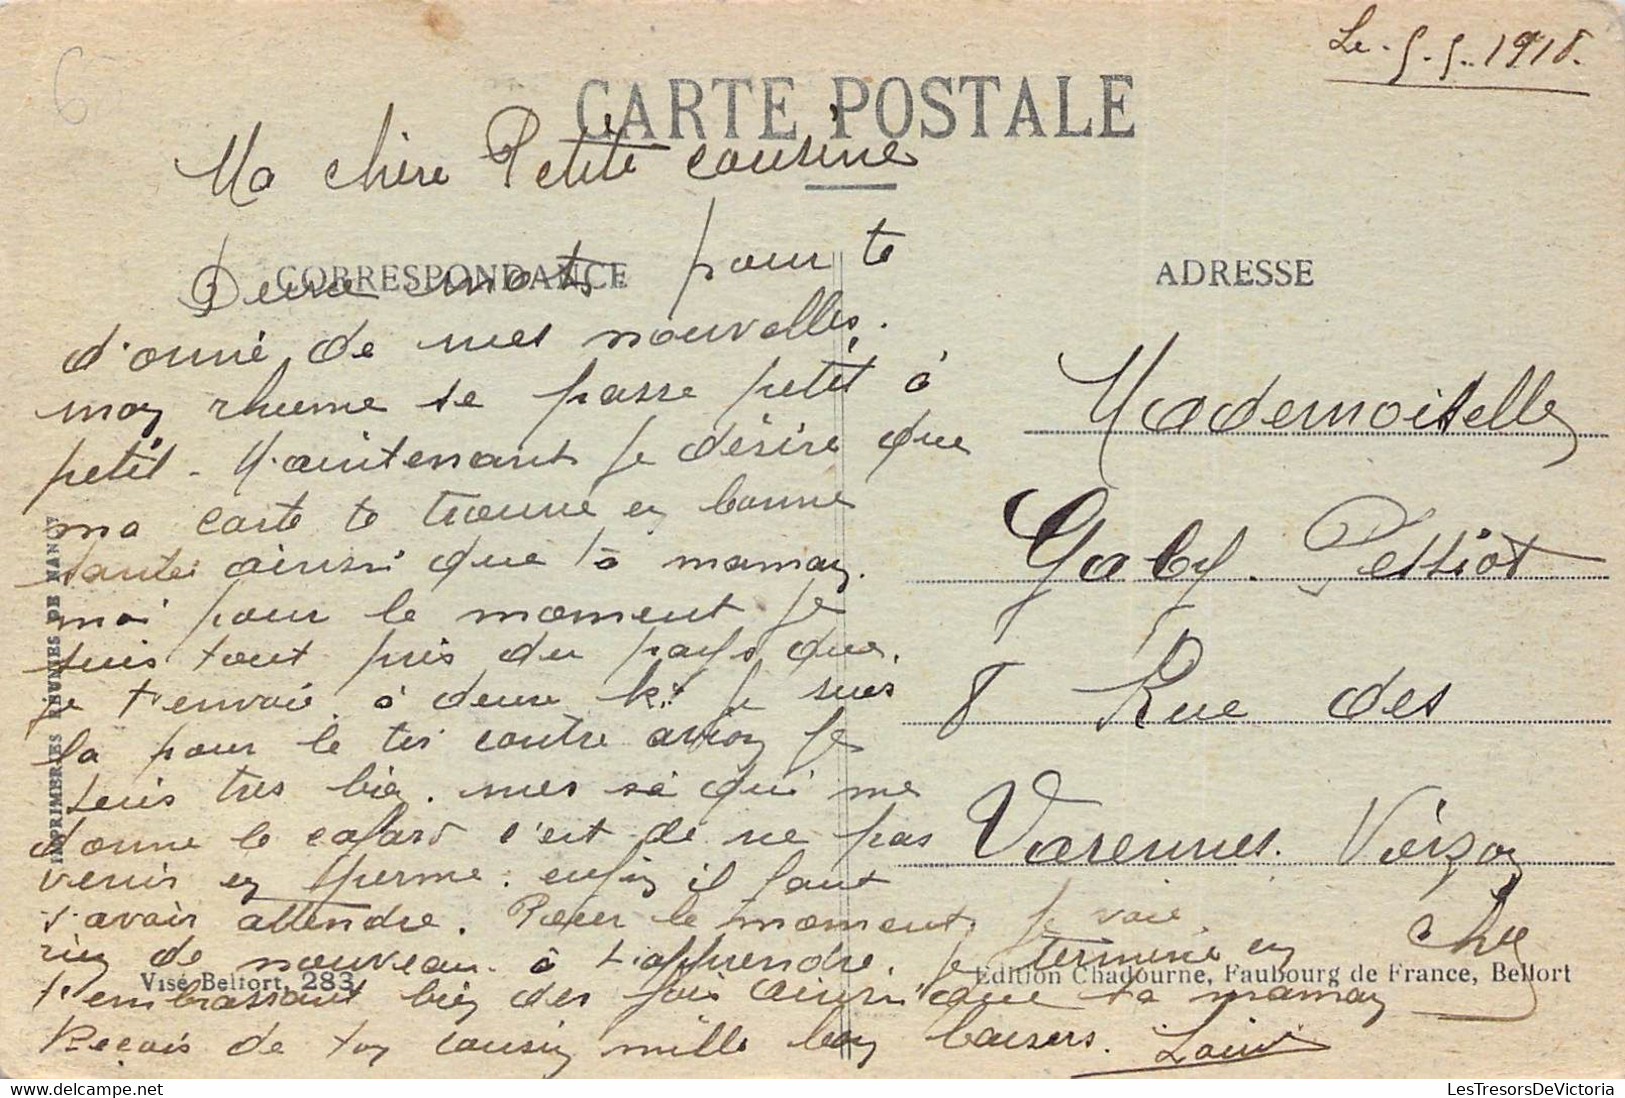 Le 5-5-1918.
CARTE POSTALE
Ma chère Petite cousine
CORRESPONDANCE
ADRESSE
Deux mots pour te
d'onné de mes nouvelles.
moy rhume se passe petit à
petit - Maintenant je désire que
ma carte te trouve en bonne
santé ainsi que ta maman.
moi pour le moment je
suis tout près du pays que
je t'envoie à deux kt je suis
la pour le tir contre avion je
suis très bie. mes sé qui me
donne le cafard c'est de ne pas
venir en perme. enfin il faut
s'avoir attendre. Pour le moment je voie
rien de nouveau à t'apprendre. je termine en
t'embrassant bien des fois ainsi que ta maman
Reçois de ton cousin mille bon baisers. Louis
Mademoiselle
Gaby. Pelliot
8 Rue des
Varennes. Vierzon
Cher
IMPRIMERIES RÉUNIES DE NANCY
Visé Belfort, 283
Edition Chadourne, Faubourg de France, Belfort
LesTresorsDeVictoria.com